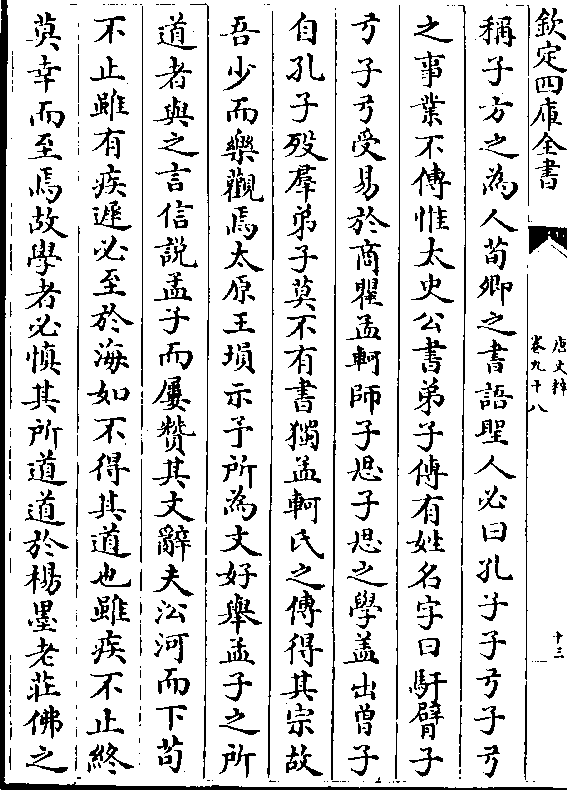 欽定四庫全書
唐文粹
卷九十八
十三
稱子方之為人荀卿之書語聖人必曰孔子子弓子弓
之事業不傳惟太史公書弟子傳有姓名字曰馯臂子
弓子弓受易於商瞿孟軻師子思子思之學蓋出曾子
自孔子殁羣弟子莫不有書獨孟軻氏之傳得其宗故
吾少而樂觀焉太原王塤示予所為文好舉孟子之所
道者與之言信説孟子而屢贊其文辭夫沿河而下茍
不止雖有疾遲必至於海如不得其道也雖疾不止終
莫幸而至焉故學者必慎其所道道於楊墨老莊佛之